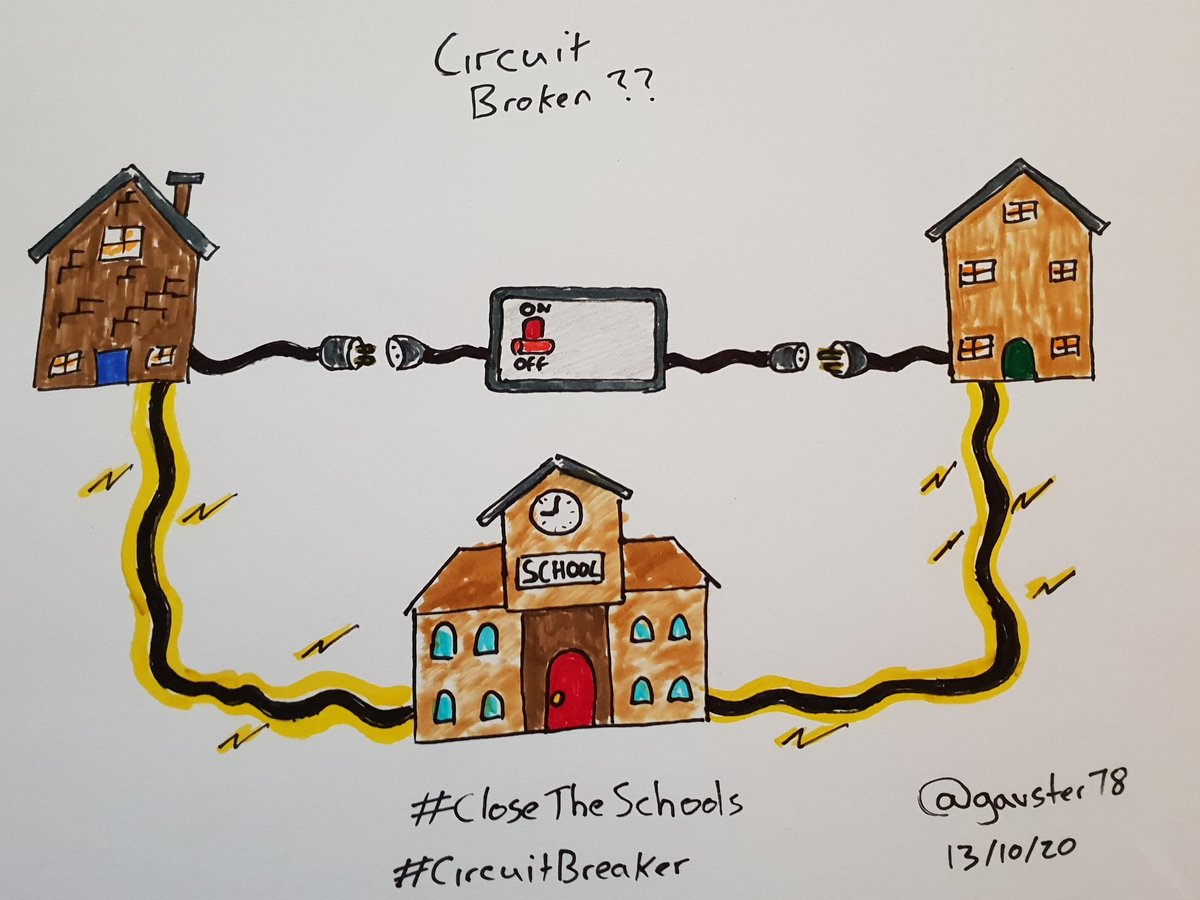 Circuit
Broken ??
ON
OFF
SCHOOL
#CloseTheSchools
#CircuitBreaker
@gauster78
13/10/20